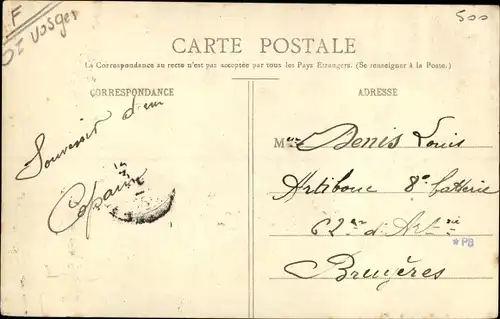 F
Vosges
500
CARTE POSTALE
La Correspondance au recto n'est pas acceptée par tous les Pays Etrangers. (Se renseigner à la Poste.)
CORRESPONDANCE
ADRESSE
Souvenir d'un
Copain
Denis Louis
8e batterie
62me d'Art rie
*PB
Bruyères